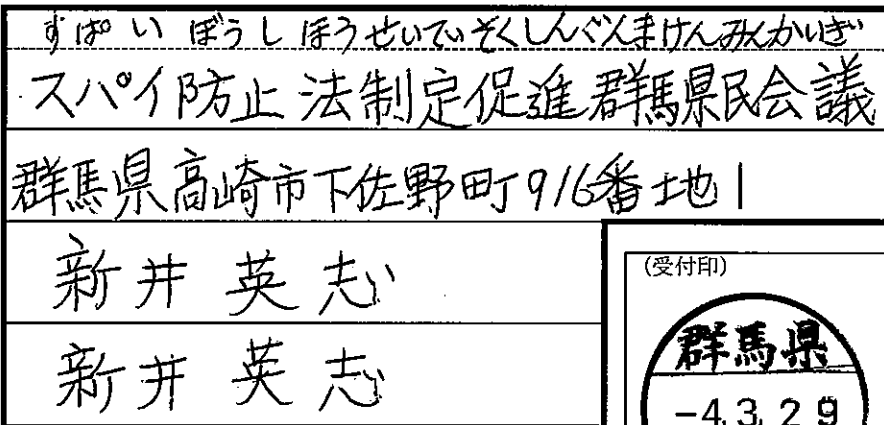 すぱい ぼうし ほうせいていそくしんぐんまけんみんかいぎ
スパイ防止法制定促進群馬県民会議
群馬県高崎市下佐野町916番地1
新井英志
新井英志
(受付印)
群馬県
-4.3.29